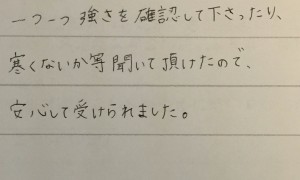 一つ一つ強さを確認して下さったり、
寒くないか等聞いて頂けたので、
安心して受けられました。